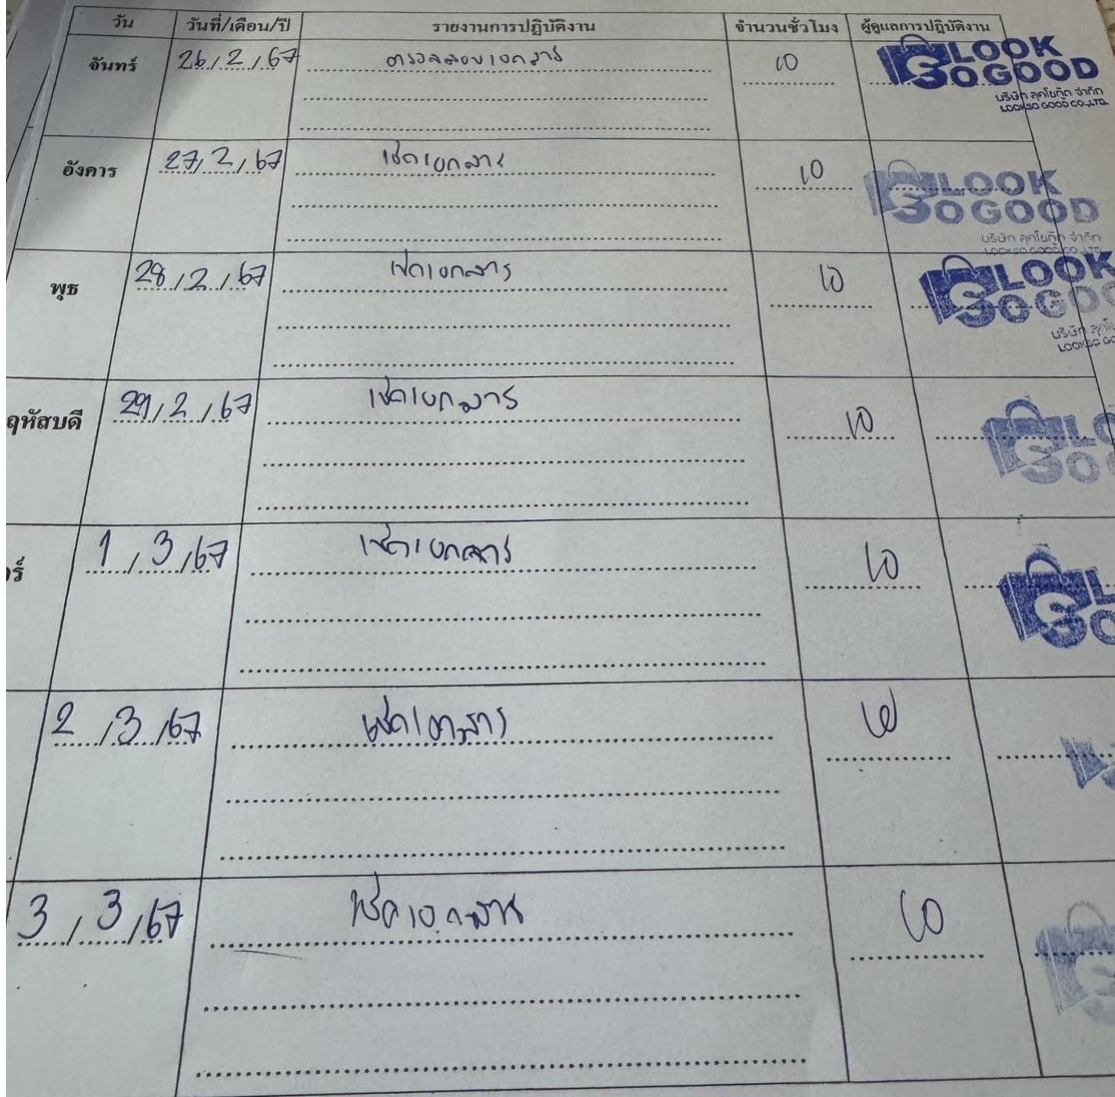 วัน วันที่/เดือน/ปี รายงานการปฏิบัติงาน จำนวนชั่วโมง ผู้ดูแลการปฏิบัติงาน
จันทร์ 26/2/67 ตรวจสอบเอกสาร 10
LOOK
SO GOOD
บริษัท ลุคโซกู๊ด จำกัด
LOOKSO GOOD CO.,LTD.
อังคาร 27/2/67 เช็คเอกสาร 10
LOOK
SO GOOD
บริษัท ลุคโซกู๊ด จำกัด
LOOKSO GOOD CO.,LTD.
พุธ 28/2/67 เช็คเอกสาร 10
LOOK
SO GOO
บริษัท
LOOKSO GO
ฤหัสบดี 29/2/67 เช็คเอกสาร 10
LO
SO
ร์ 1/3/67 เช็คเอกสาร 10
L
SO
2/3/67 เช็คเอกสาร 10
3/3/67 เช็คเอกสาร 10